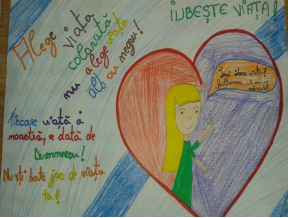 IUBEȘTE VIAȚA!
Alege
viața
colorată
nu a lege viața
alb cu negru!
Fiecare viață a
noastră, e dată de
Dumnezeu!
Nu-ți bate joc de viața
ta!